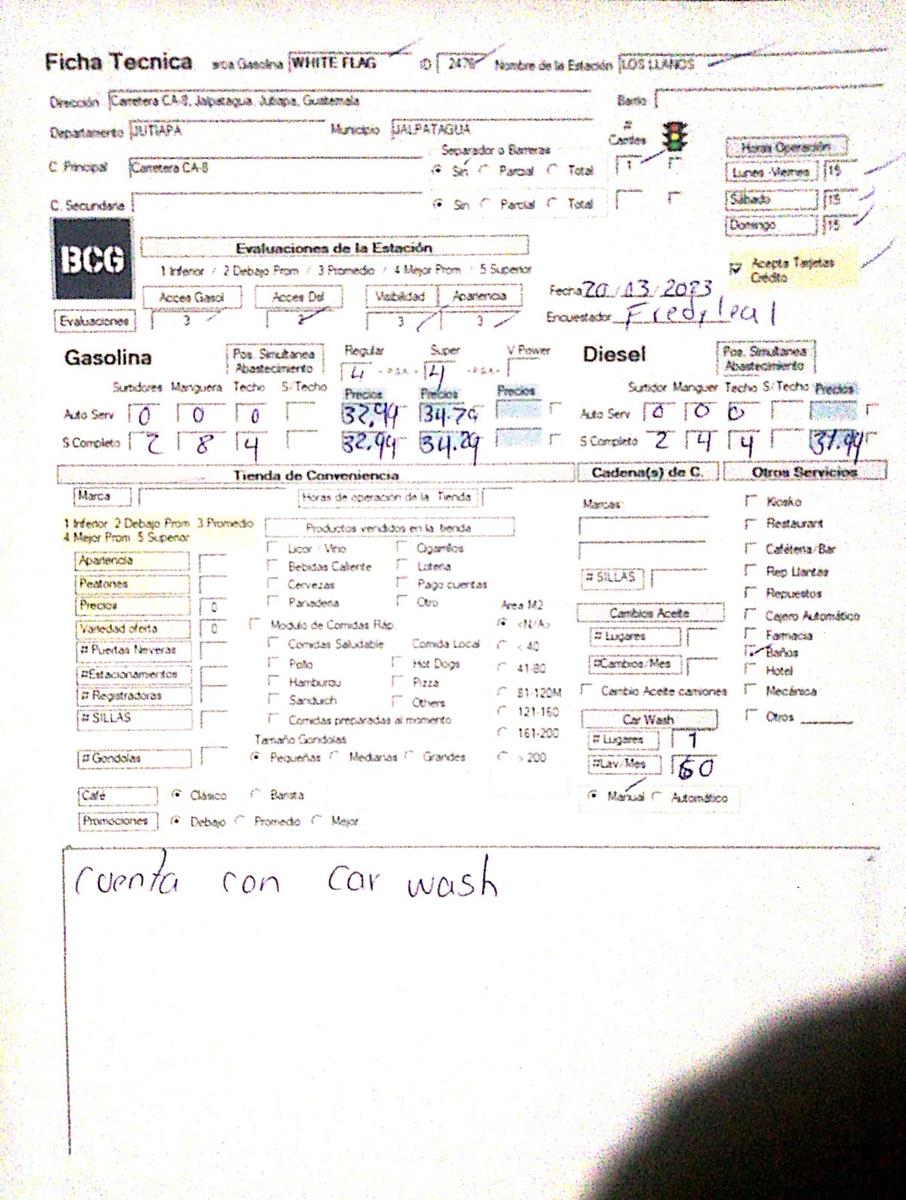 Ficha Tecnica arca Gasolina WHITE FLAG ID 2476 Nombre de la Estación LOS LLANOS
Dirección Carretera CA-8, Jalpatagua, Jutiapa, Guatemala Barrio
Departamento JUTIAPA Municipio JALPATAGUA # Carriles
Separador o Barreras Horas Operación
C. Principal Carretera CA-8 Sin Parcial Total 1 Lunes -Viernes 15
C. Secundaria Sin Parcial Total Sábado 15
Domingo 15
BCG
Evaluaciones de la Estación
1 Inferior / 2 Debajo Prom / 3 Promedio / 4 Mejor Prom / 5 Superior
Acepta Tarjetas Crédito
Acces Gasol Acces Dsl Visibilidad Apariencia Fecha 20/03/2023
Evaluaciones 3 2 3 3 Encuestador Fredy leal
Gasolina Pos. Simultanea Abastecimiento Regular Super V Power Diesel Pos. Simultanea Abastecimiento
4 - P.S.A. - 4 - P.S.A. -
Surtidores Manguera Techo S/Techo Precios Precios Precios Surtidor Manguer Techo S/Techo Precios
Auto Serv 0 0 0 32.99 34.79 Auto Serv 0 0 0
S Completo 2 8 4 32.99 34.29 S Completo 2 4 4 31.99
Tienda de Conveniencia Cadena(s) de C. Otros Servicios
Marca Horas de operación de la Tienda Marcas: Kiosko
1 Inferior 2 Debajo Prom 3 Promedio
4 Mejor Prom 5 Superior
Productos vendidos en la tienda Restaurant
Licor / Vino Cigarrillos Cafétería/Bar
Apariencia Bebidas Caliente Loteria
Peatones Cervezas Pago cuentas # SILLAS Rep Llantas
Precios 0 Panaderia Otro Area M2 Repuestos
Variedad oferta 0 Modulo de Comidas Ráp. <N/A> Cambios Aceite Cajero Automático
# Puertas Neveras Comidas Saludable Comida Local < 40 # Lugares Farmacia
Baños
#Estacionamientos Pollo Hot Dogs 41-80 #Cambios/Mes Hotel
# Registradoras Hamburgu Pizza 81-120M Cambio Aceite camiones Mecánica
# SILLAS Sanduich Others 121-160 Car Wash Otros
Comidas preparadas al momento 161-200 # Lugares 1
Tamaño Gondolas
# Gondolas Pequeñas Medianas Grandes > 200 #Lav/Mes 60
Café Clásico Barista Manual Automático
Promociones Debajo Promedio Mejor
cuenta con car wash